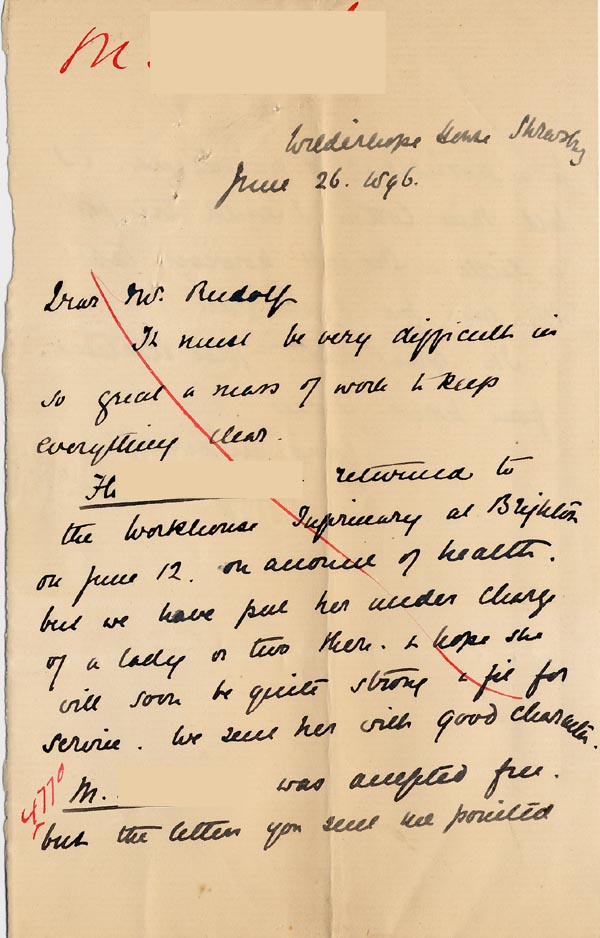 M.
Wilderhope House Shrewsbry
June 26. 1896.
Dear Mr. Rudolf
It must be very difficult in
so great a mass of work to keep
everything clear.
Fl. returned to
the Workhouse Infirmary at Brighton
on June 12. on account of health.
but we have put her under charge
of a lady or two there. & hope she
will soon be quite strong & fit for
service. We send her with good character.
4770
M. was accepted free.
but the letters you sent me pointed